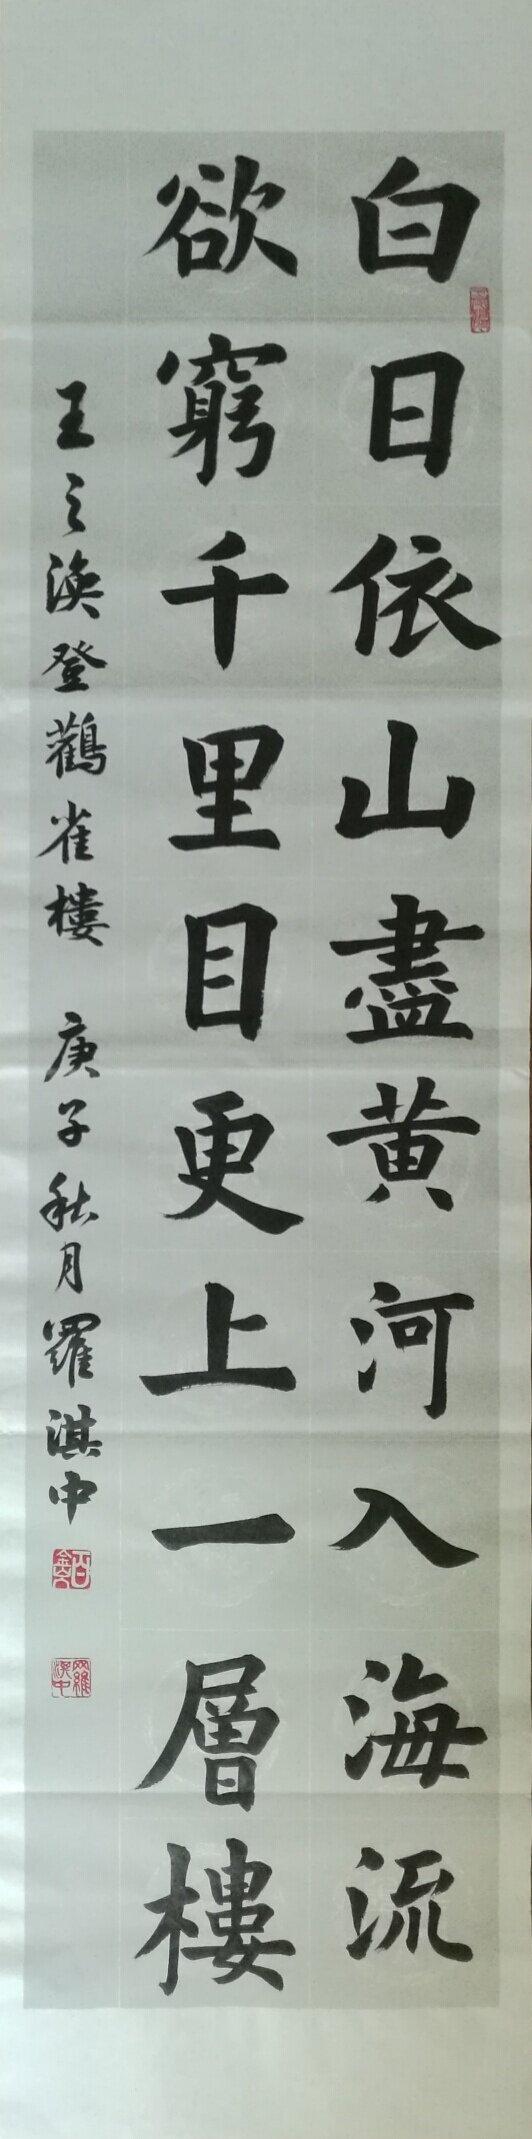 白日依山盡黄河入海流
欲窮千里目更上一層樓
王之渙登鸛雀樓 庚子秋月羅淇中
羅淇中